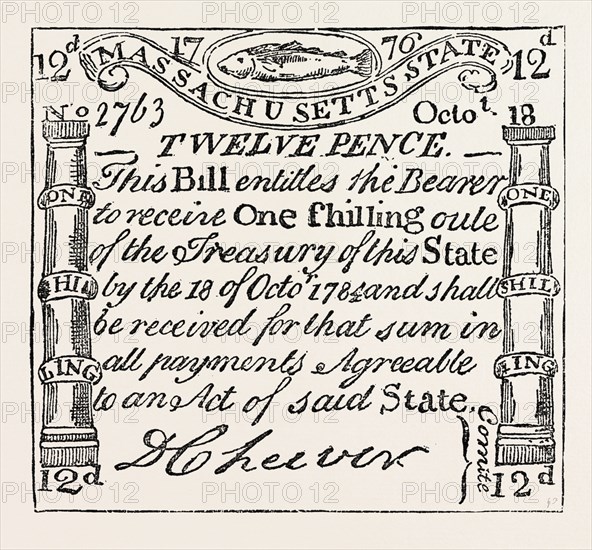 12d 17 76 12d
MASSACHUSETTS STATE
No 2763 Octot. 18
— TWELVE PENCE. —
This Bill entitles the Bearer
to receive One ſhilling oute
of the Treasury of this State
by the 18 of Octor 1784 and shall
be received for that sum in
all payments Agreeable
to an Act of said State.
ONE
SHIL
LING
ONE
SHIL
LING
D Cheever
Comite
12d 12d
PHOTO 12